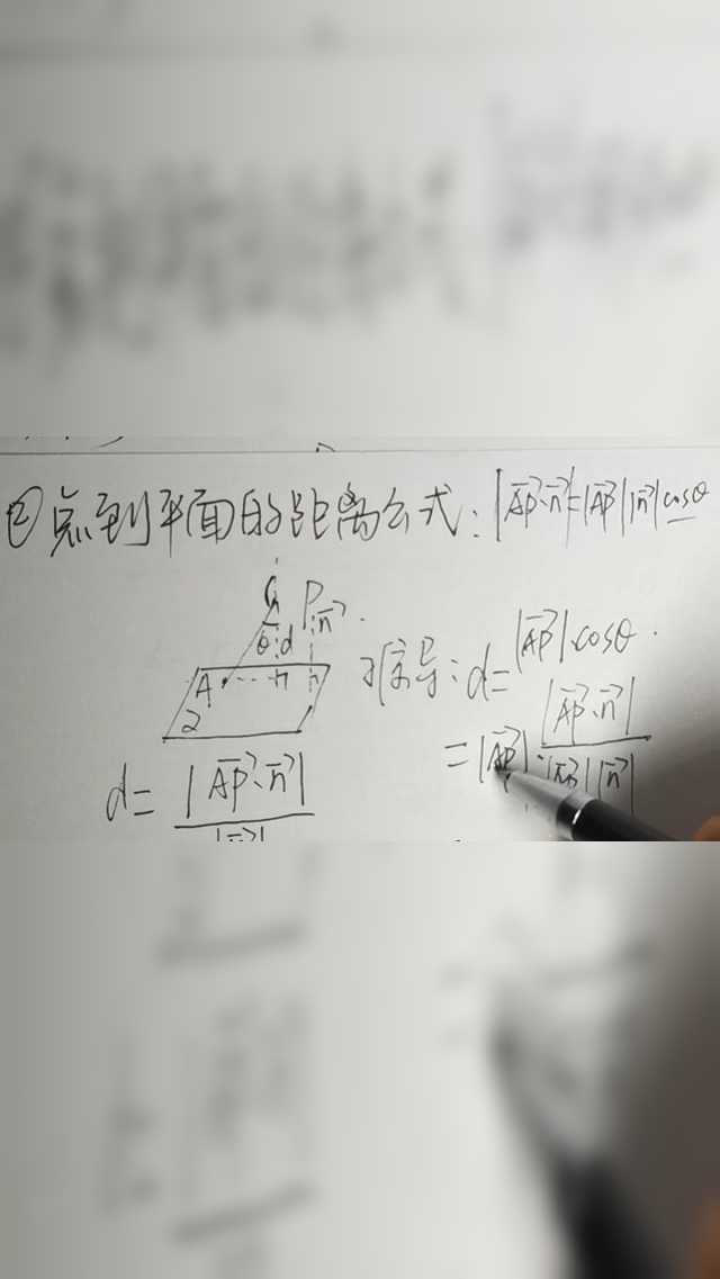 ②点到平面的距离公式：|AP⃗·n⃗|=|AP⃗||n⃗|cosθ
P n⃗
θ d
A
2
推导：d=|AP⃗|·cosθ
=|AP⃗|·|AP⃗·n⃗|/|AP⃗||n⃗|
d=|AP⃗·n⃗|/|n⃗|